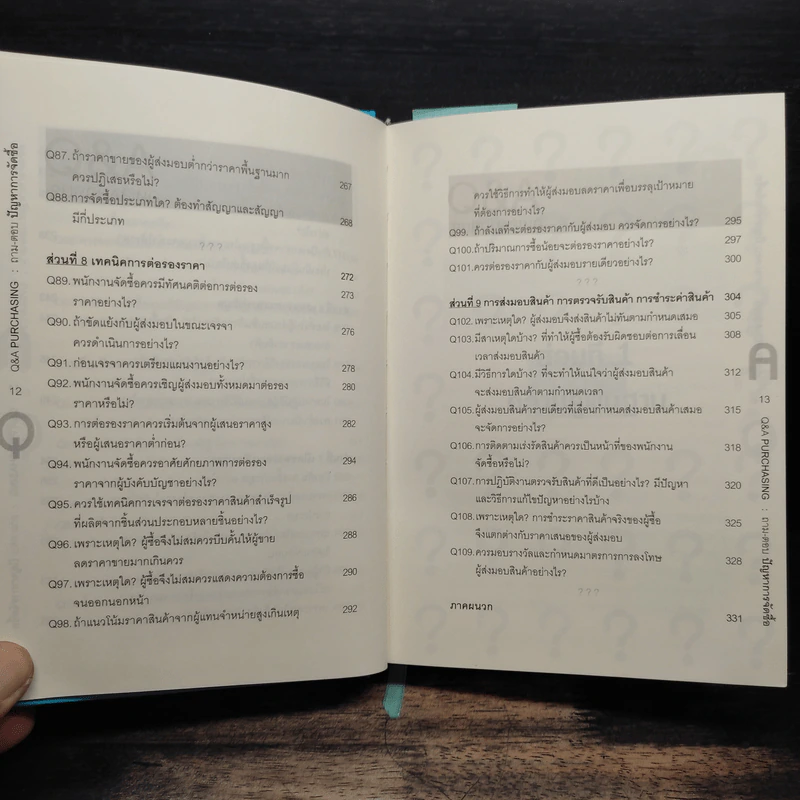 Q87. ถ้าราคาขายของผู้ส่งมอบต่ำกว่าราคาพื้นฐานมาก
ควรปฏิเสธหรือไม่? 267
Q88. การจัดซื้อประเภทใด? ต้องทำสัญญาและสัญญา
มีกี่ประเภท 268
???
ส่วนที่ 8 เทคนิคการต่อรองราคา 272
Q89. พนักงานจัดซื้อควรมีทัศนคติต่อการต่อรอง 273
ราคาอย่างไร?
Q90. ถ้าขัดแย้งกับผู้ส่งมอบในขณะเจรจา 276
ควรดำเนินการอย่างไร?
Q91. ก่อนเจรจาควรเตรียมแผนงานอย่างไร? 278
Q92. พนักงานจัดซื้อควรเชิญผู้ส่งมอบทั้งหมดมาต่อรอง 280
ราคาหรือไม่?
Q93. การต่อรองราคาควรเริ่มต้นจากผู้เสนอราคาสูง 282
หรือผู้เสนอราคาต่ำก่อน?
Q94. พนักงานจัดซื้อควรอาศัยศักยภาพการต่อรอง 294
ราคาจากผู้บังคับบัญชาอย่างไร?
Q95. ควรใช้เทคนิคการเจรจาต่อรองราคาสินค้าสำเร็จรูป 286
ที่ผลิตจากชิ้นส่วนประกอบหลายชิ้นอย่างไร?
Q96. เพราะเหตุใด? ผู้ซื้อจึงไม่สมควรบีบคั้นให้ผู้ขาย 288
ลดราคาขายมากเกินควร
Q97. เพราะเหตุใด? ผู้ซื้อจึงไม่สมควรแสดงความต้องการซื้อ 290
จนออกนอกหน้า
Q98. ถ้าแนวโน้มราคาสินค้าจากผู้แทนจำหน่ายสูงเกินเหตุ 292
Q&A PURCHASING : ถาม-ตอบ ปัญหาการจัดซื้อ
12
Q
ควรใช้วิธีการทำให้ผู้ส่งมอบลดราคาเพื่อบรรลุเป้าหมาย
ที่ต้องการอย่างไร?
Q99. ถ้าลังเลที่จะต่อรองราคากับผู้ส่งมอบ ควรจัดการอย่างไร? 295
Q100. ถ้าปริมาณการซื้อน้อยจะต่อรองราคาอย่างไร? 297
Q101. ควรต่อรองราคากับผู้ส่งมอบรายเดียวอย่างไร? 300
???
ส่วนที่ 9 การส่งมอบสินค้า การตรวจรับสินค้า การชำระค่าสินค้า 304
Q102. เพราะเหตุใด? ผู้ส่งมอบจึงส่งสินค้าไม่ทันตามกำหนดเสมอ 305
Q103. มีสาเหตุใดบ้าง? ที่ทำให้ผู้ซื้อต้องรับผิดชอบต่อการเลื่อน 308
เวลาส่งมอบสินค้า
Q104. มีวิธีการใดบ้าง? ที่จะทำให้แน่ใจว่าผู้ส่งมอบสินค้า 312
จะส่งมอบสินค้าตามกำหนดเวลา
Q105. ผู้ส่งมอบสินค้ารายเดียวที่เลื่อนกำหนดส่งมอบสินค้าเสมอ 315
จะจัดการอย่างไร?
Q106. การติดตามเร่งรัดสินค้าควรเป็นหน้าที่ของพนักงาน 318
จัดซื้อหรือไม่?
Q107. การปฏิบัติงานตรวจรับสินค้าที่ดีเป็นอย่างไร? มีปัญหา 320
และวิธีการแก้ไขปัญหาอย่างไรบ้าง
Q108. เพราะเหตุใด? การชำระราคาสินค้าจริงของผู้ซื้อ 325
จึงแตกต่างกับราคาเสนอของผู้ส่งมอบ
Q109. ควรมอบรางวัลและกำหนดมาตรการการลงโทษ 328
ผู้ส่งมอบสินค้าอย่างไร?
???
ภาคผนวก 331
A
13
Q&A PURCHASING : ถาม-ตอบ ปัญหาการจัดซื้อ